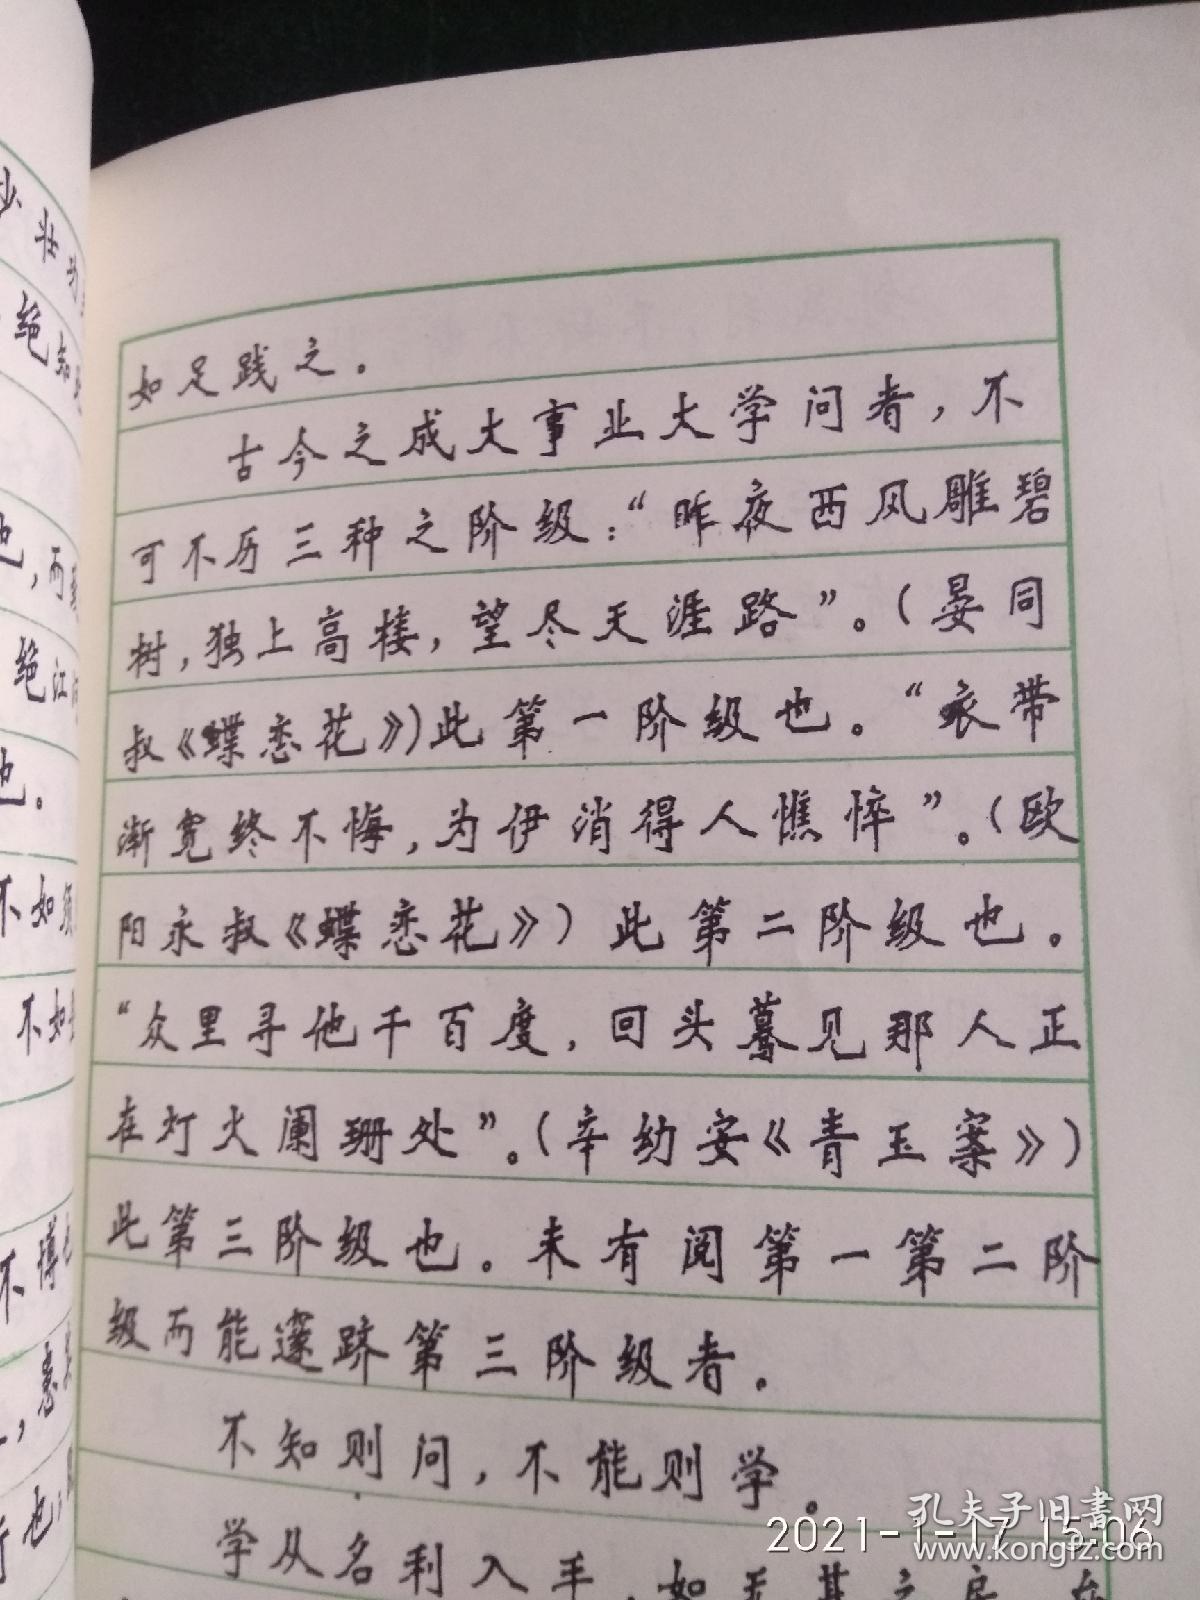 少壮功
绝知
也,而
绝江
也。
不如须
不如
不博也
,惠
行也,
如足践之。
古今之成大事业大学问者,不
可不历三种之阶级:“昨夜西风雕碧
树,独上高楼,望尽天涯路”。(晏同
叔《蝶恋花》)此第一阶级也。“衣带
渐宽终不悔,为伊消得人憔悴”。(欧
阳永叔《蝶恋花》)此第二阶级也。
“众里寻他千百度,回头蓦见那人正
在灯火阑珊处”。(辛幼安《青玉案》)
此第三阶级也。未有阅第一第二阶
级而能邃跻第三阶级者。
不知则问,不能则学。
学从名利入手,如无基之房,
孔夫子旧书网
2021-1-17 15:06
www.kongfz.com